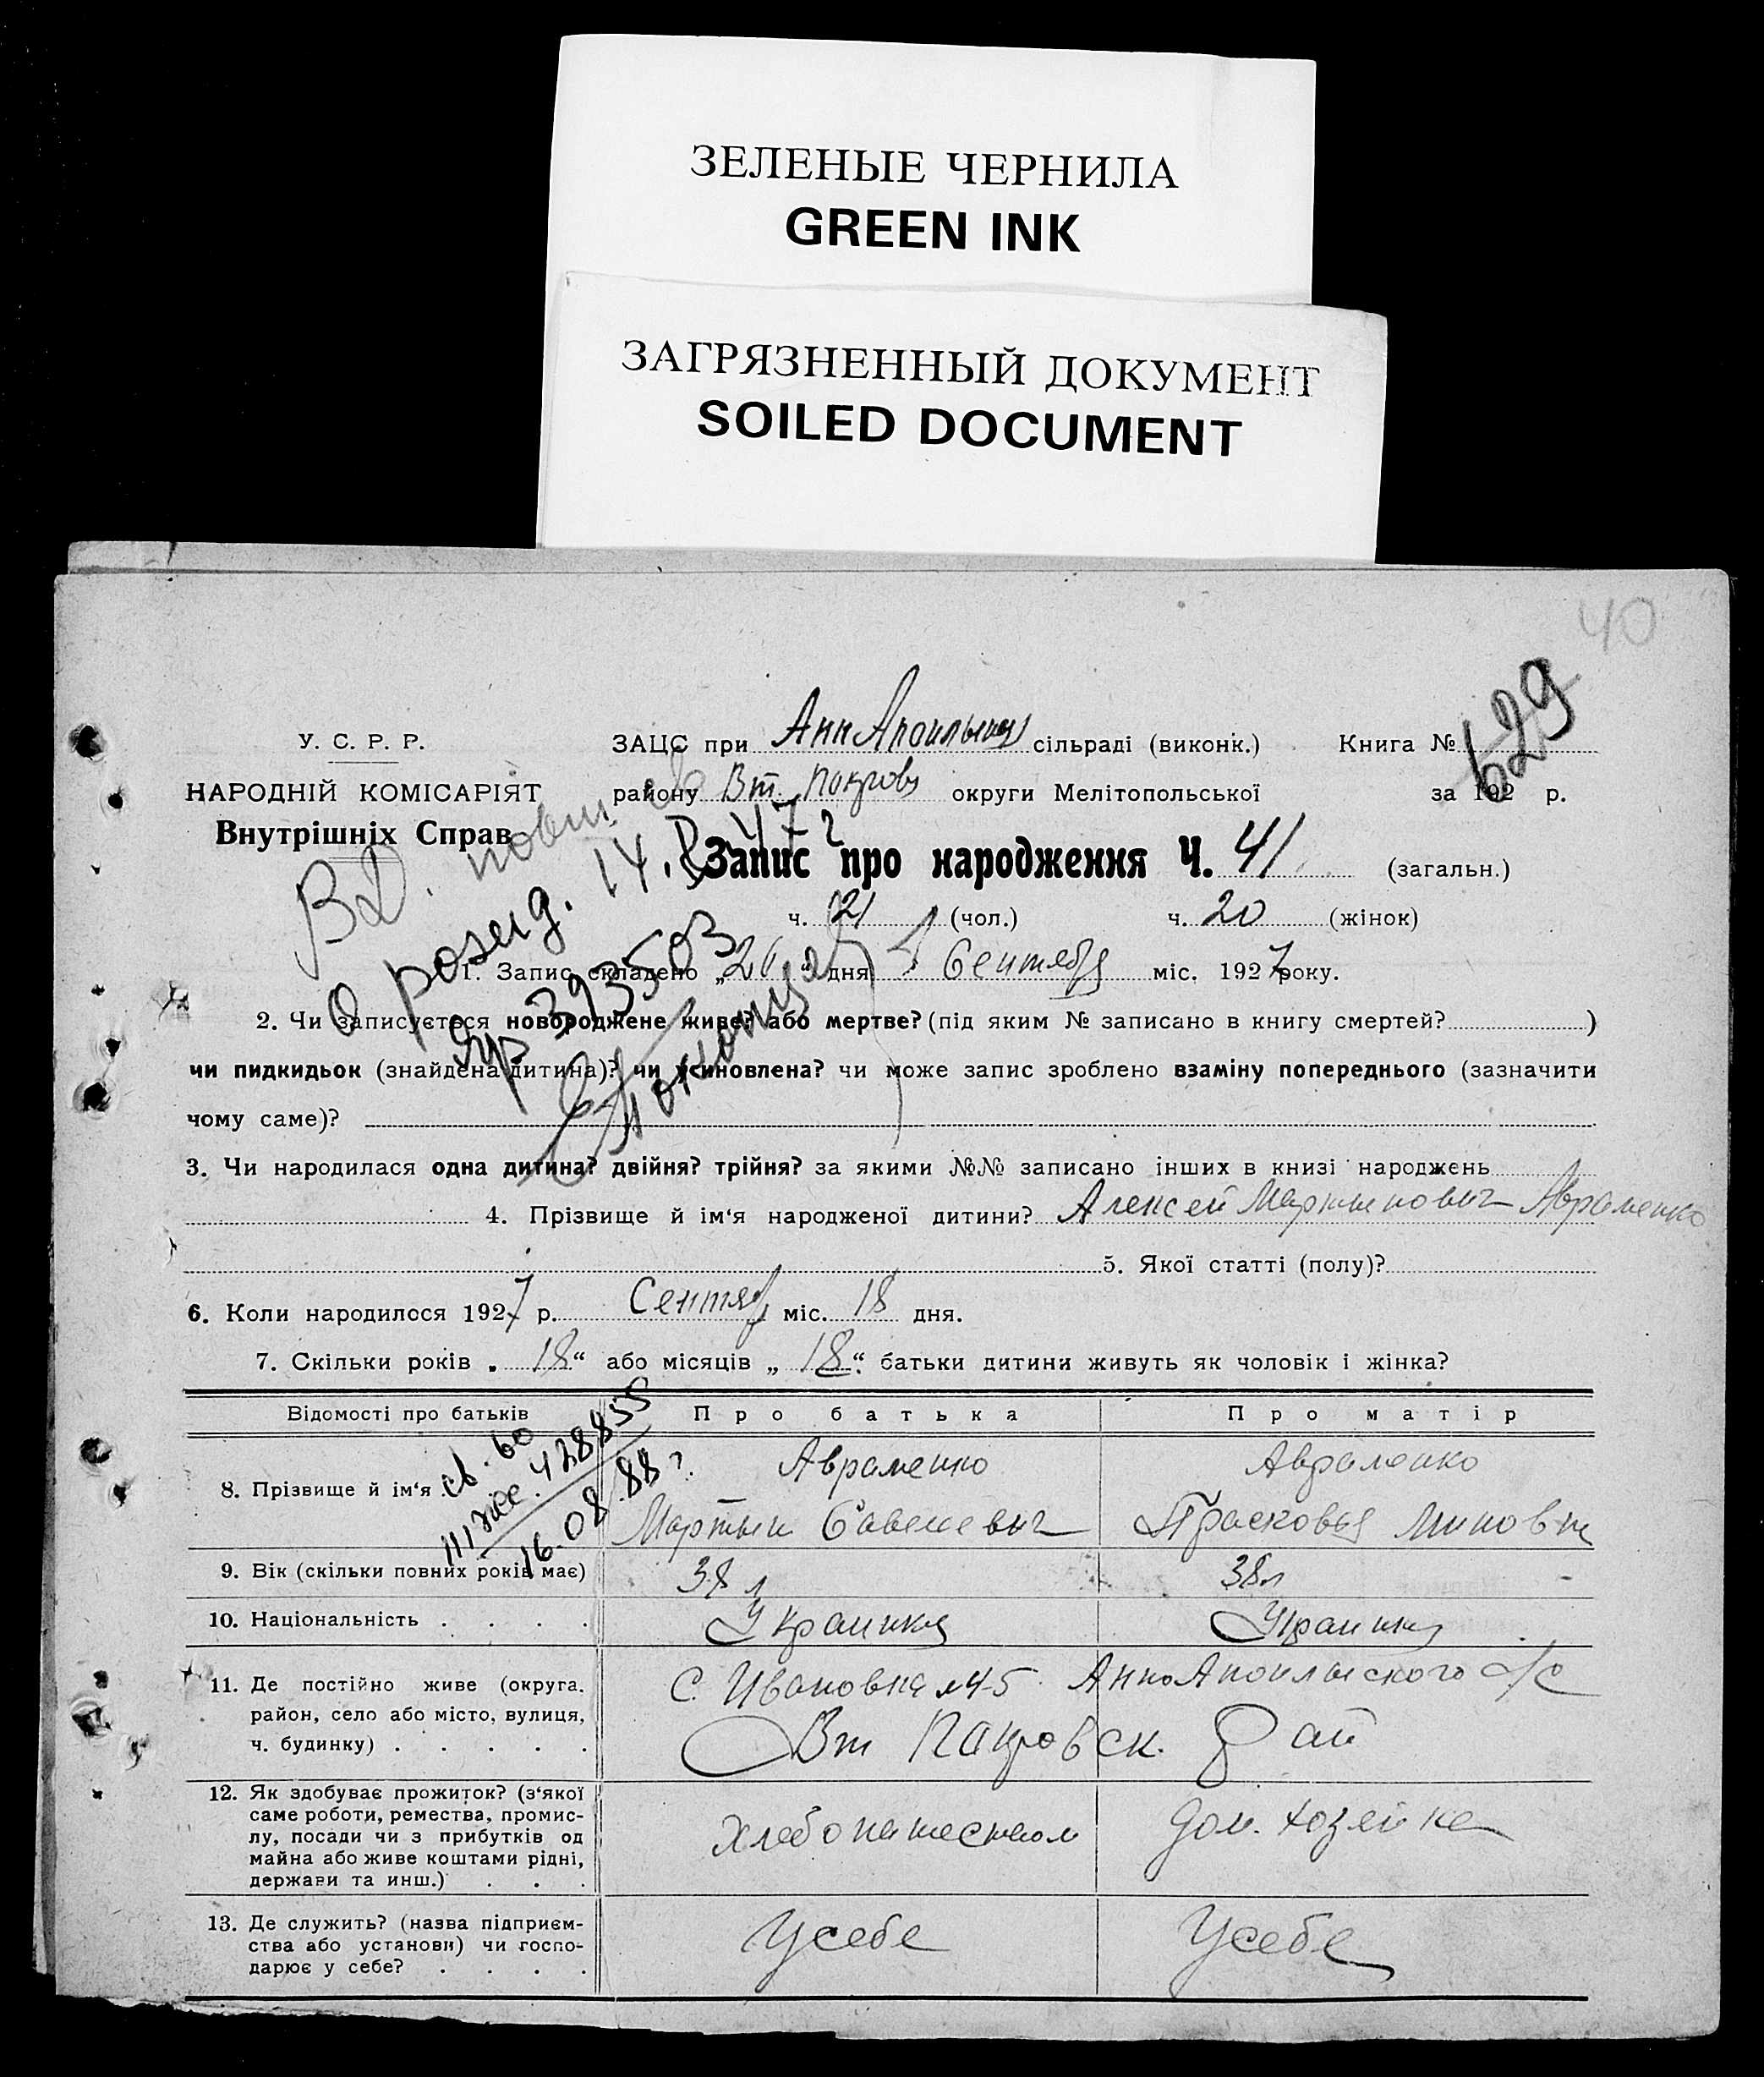 ЗЕЛЕНЫЕ ЧЕРНИЛА
GREEN INK
ЗАГРЯЗНЕННЫЙ ДОКУМЕНТ
SOILED DOCUMENT
40
629
У. С. Р. Р.
НАРОДНІЙ КОМІСАРІЯТ
Внутрішніх Справ
ЗАЦС при сільраді (виконк.) Книга №
району Вт. Покров округи Мелітопольської за 192 р.
Запис про народження Ч. 41 (загальн.)
ч. 21 (чол.) ч. 20 (жінок)
1. Запис складено „26“ дня Сентября міс. 1927 року.
2. Чи записується новороджене живе? або мертве? (під яким № записано в книгу смертей? )
чи пидкидьок (знайдена дитина)? чи усиновлена? чи може запис зроблено взаміну попереднього (зазначити
чому саме)?
3. Чи народилася одна дитина? двійня? трійня? за якими №№ записано інших в книзі народжень
4. Прізвище й ім‘я народженої дитини? Алексей Мартынович Авраменко
5. Якої статті (полу)?
6. Коли народилося 1927 р. Сентяб міс. 18 дня.
7. Скільки років „ 18 “ або місяців „ 18 “ батьки дитини живуть як чоловік і жінка?
Відомості про батьків Про батька Про матір
8. Прізвище й ім‘я Авраменко Авраменко
Мартын Савелевич Прасковья Миновна
9. Вік (скільки повних років має) 38 л 38 л
10. Національність . . . .
11. Де постійно живе (округа, район, село або місто, вулиця, ч. будинку) . . . . . С. Ивановка №45 АнноАпоильского с/с
Вт Покровск. Рай
12. Як здобуває прожиток? (з‘якої саме роботи, ремества, промислу, посади чи з прибутків од майна або живе коштами рідні, держави та инш.) . . . дом. хозяйка
13. Де служить? (назва підприємства або установи) чи господарює у себе? . . . . У себе У себе
16.08.88 г.